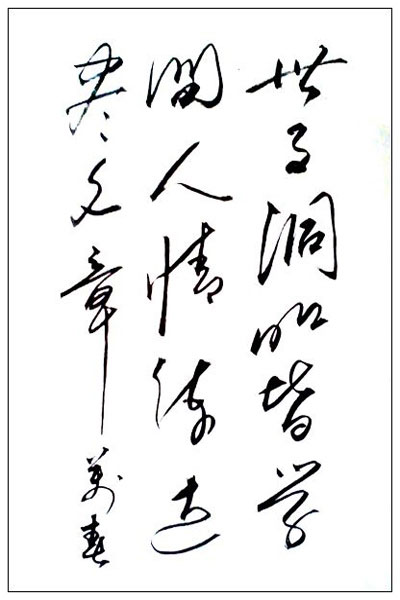 世事洞明皆学
问人情练达
尽文章
萬春